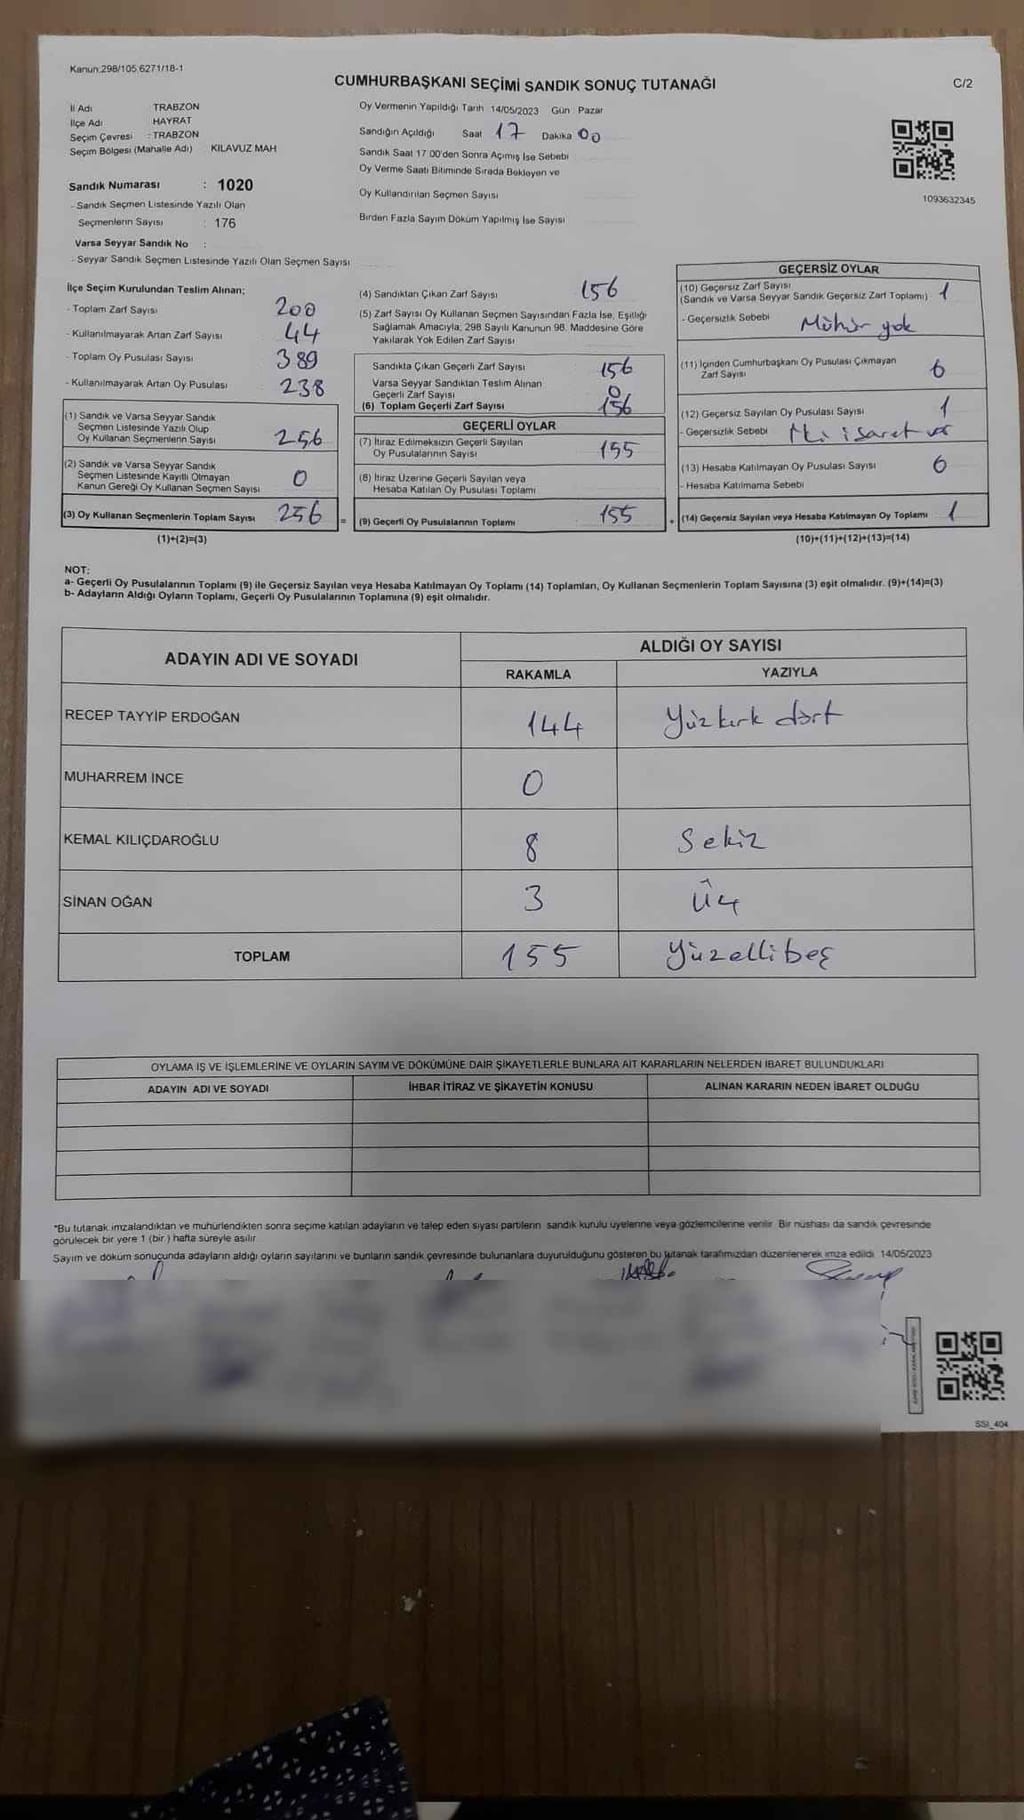 Kanun:298/105,6271/18-1
CUMHURBAŞKANI SEÇİMİ SANDIK SONUÇ TUTANAĞI
C/2
İl Adı TRABZON
İlçe Adı HAYRAT
Seçim Çevresi : TRABZON
Seçim Bölgesi (Mahalle Adı) KILAVUZ MAH
Sandık Numarası : 1020
- Sandık Seçmen Listesinde Yazılı Olan
Seçmenlerin Sayısı : 176
Varsa Seyyar Sandık No :
- Seyyar Sandık Seçmen Listesinde Yazılı Olan Seçmen Sayısı
Oy Vermenin Yapıldığı Tarih 14/05/2023 Gün Pazar
Sandığın Açıldığı Saat 17 Dakika 00
Sandık Saat 17 00'den Sonra Açımış İse Sebebi
Oy Verme Saati Bitiminde Sırada Bekleyen ve
Oy Kullandırılan Seçmen Sayısı
Birden Fazla Sayım Döküm Yapılmış İse Sayısı
1093632345
İlçe Seçim Kurulundan Teslim Alınan;
- Toplam Zarf Sayısı 200
- Kullanılmayarak Artan Zarf Sayısı 44
- Toplam Oy Pusulası Sayısı 389
- Kullanılmayarak Artan Oy Pusulası 238
(1) Sandık ve Varsa Seyyar Sandık
Seçmen Listesinde Yazılı Olup
Oy Kullanan Seçmenlerin Sayısı 256
(2) Sandık ve Varsa Seyyar Sandık
Seçmen Listesinde Kayıtlı Olmayan
Kanun Gereği Oy Kullanan Seçmen Sayısı 0
(3) Oy Kullanan Seçmenlerin Toplam Sayısı 256
(1)+(2)=(3)
(4) Sandıktan Çıkan Zarf Sayısı 156
(5) Zarf Sayısı Oy Kullanan Seçmen Sayısından Fazla İse, Eşitliği
Sağlamak Amacıyla, 298 Sayılı Kanunun 98. Maddesine Göre
Yakılarak Yok Edilen Zarf Sayısı
Sandıkta Çıkan Geçerli Zarf Sayısı 156
Varsa Seyyar Sandıktan Teslim Alınan
Geçerli Zarf Sayısı 0
(6) Toplam Geçerli Zarf Sayısı 156
GEÇERLİ OYLAR
(7) İtiraz Edilmeksizin Geçerli Sayılan
Oy Pusulalarının Sayısı 155
(8) İtiraz Üzerine Geçerli Sayılan veya
Hesaba Katılan Oy Pusulası Toplamı
= (9) Geçerli Oy Pusulalarının Toplamı 155
GEÇERSİZ OYLAR
(10) Geçersiz Zarf Sayısı
(Sandık ve Varsa Seyyar Sandık Geçersiz Zarf Toplamı) 1
- Geçersizlik Sebebi Mühür yok
(11) İçinden Cumhurbaşkanı Oy Pusulası Çıkmayan
Zarf Sayısı 0
(12) Geçersiz Sayılan Oy Pusulası Sayısı 1
- Geçersizlik Sebebi işaret var
(13) Hesaba Katılmayan Oy Pusulası Sayısı 0
- Hesaba Katılmama Sebebi
+ (14) Geçersiz Sayılan veya Hesaba Katılmayan Oy Toplamı 1
(10)+(11)+(12)+(13)=(14)
NOT:
a- Geçerli Oy Pusulalarının Toplamı (9) ile Geçersiz Sayılan veya Hesaba Katılmayan Oy Toplamı (14) Toplamları, Oy Kullanan Seçmenlerin Toplam Sayısına (3) eşit olmalıdır. (9)+(14)=(3)
b- Adayların Aldığı Oyların Toplamı, Geçerli Oy Pusulalarının Toplamına (9) eşit olmalıdır.
ADAYIN ADI VE SOYADI
ALDIĞI OY SAYISI
RAKAMLA YAZIYLA
RECEP TAYYİP ERDOĞAN 144 Yüzkırk dört
MUHARREM İNCE 0
KEMAL KILIÇDAROĞLU 8 Sekiz
SİNAN OĞAN 3 Üç
TOPLAM 155 Yüzellibeş
OYLAMA İŞ VE İŞLEMLERİNE VE OYLARIN SAYIM VE DÖKÜMÜNE DAİR ŞİKAYETLERLE BUNLARA AİT KARARLARIN NELERDEN İBARET BULUNDUKLARI
ADAYIN ADI VE SOYADI İHBAR İTİRAZ VE ŞİKAYETİN KONUSU ALINAN KARARIN NEDEN İBARET OLDUĞU
*Bu tutanak imzalandıktan ve mühürlendikten sonra seçime katılan adayların ve talep eden siyasi partilerin sandık kurulu üyelerine veya gözlemcilerine verilir. Bir nüshası da sandık çevresinde
görülecek bir yere 1 (bir) hafta süreyle asılır.
Sayım ve döküm sonucunda adayların aldığı oyların sayılarını ve bunların sandık çevresinde bulunanlara duyurulduğunu gösteren bu tutanak tarafımızdan düzenlenerek imza edildi. 14/05/2023
SSI_404